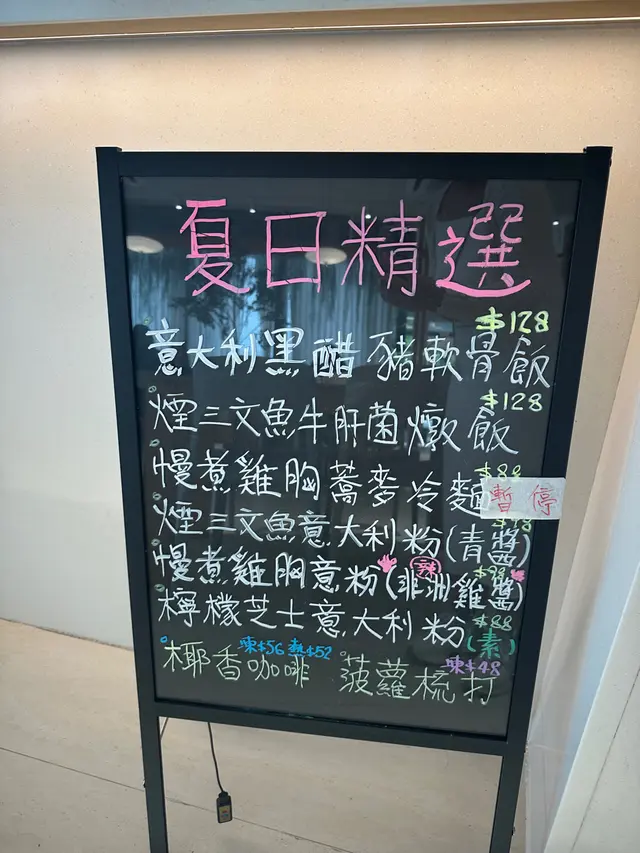 夏日精選
$128
意大利黑醋豬軟骨飯
$128
煙三文魚牛肝菌燉飯
$88
慢煮雞胸蕎麥冷麵 暫停
煙三文魚意大利粉(青醬)
辣
慢煮雞胸意粉(非洲雞醬)
$88
檸檬芝士意大利粉(素)
凍$56 熱$52
凍$48
椰香咖啡 菠蘿梳打